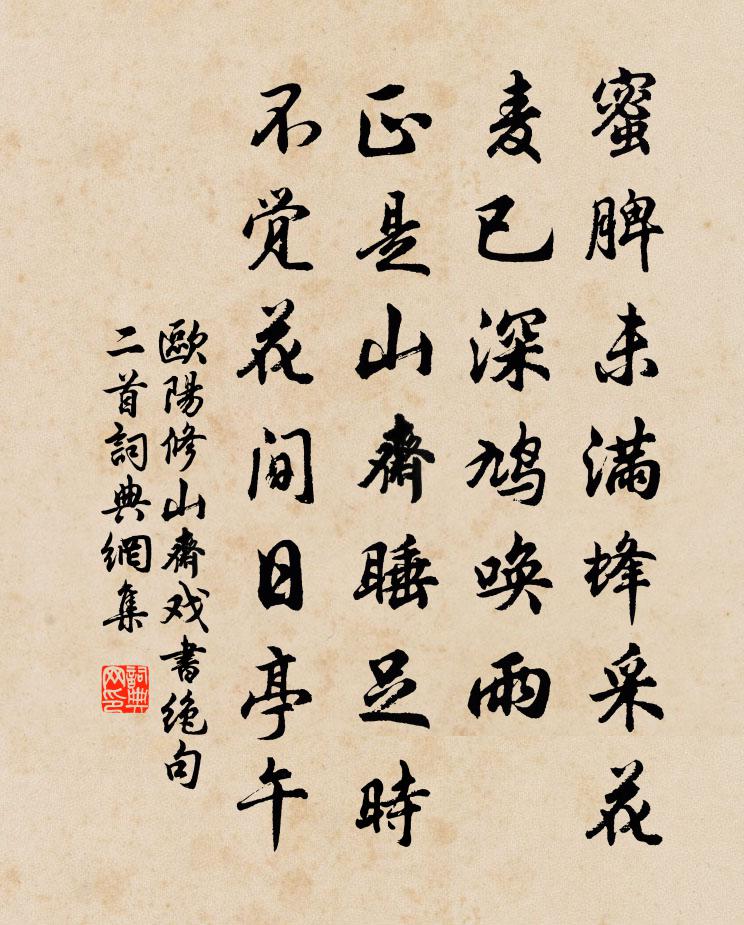 蜜脾未满蜂采花
麦已深鸠唤雨
正是山齋睡足時
不觉花间日亭午
歐陽修山齋戏書绝句
二首詞典網集
詞典网印